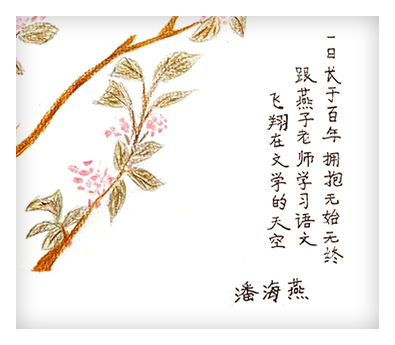 一日长于百年 拥抱无始无终
跟燕子老师学习语文
飞翔在文学的天空
潘海燕